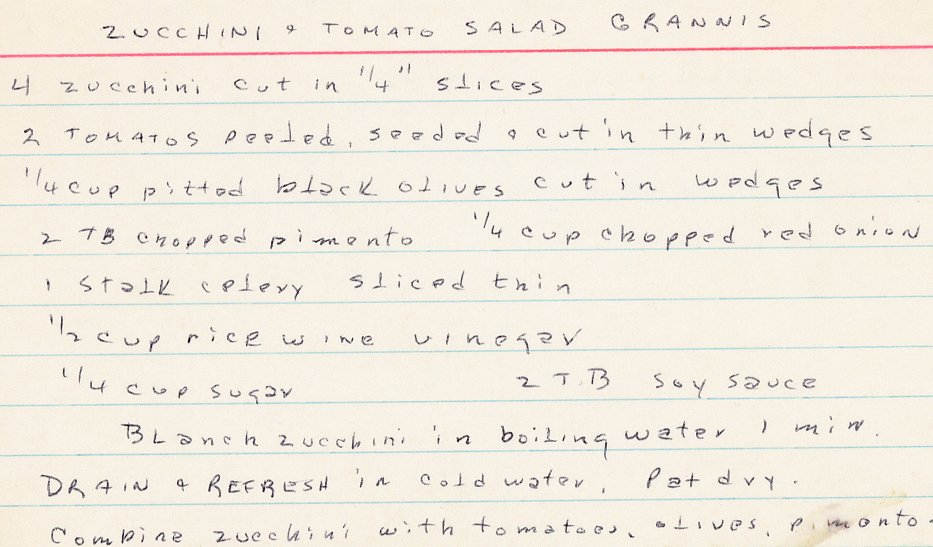 ZUCCHINI & TOMATO SALAD GRANNIS
4 zucchini cut in 1/4" slices
2 TOMATOS peeled, seeded & cut in thin wedges
1/4 cup pitted black olives cut in wedges
2 TB chopped pimento 1/4 cup chopped red onion
1 stalk celery sliced thin
1/2 cup rice wine vinegar
1/4 cup sugar 2 T.B soy sauce
Blanch zucchini in boiling water 1 min.
DRAIN & REFRESH in cold water. Pat dry.
Combine zucchini with tomatoes, olives, pimonto.